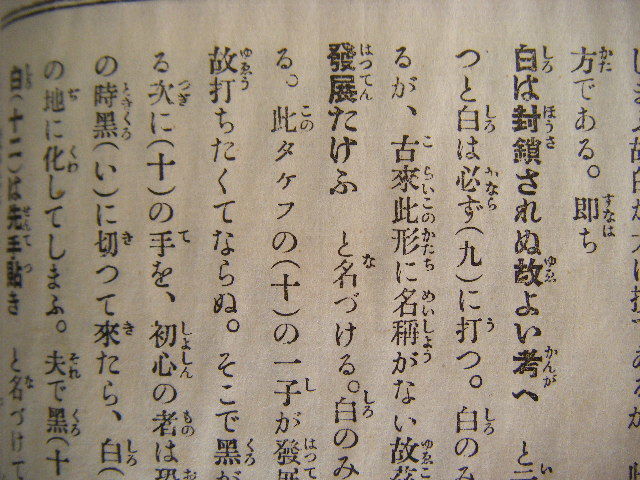 方である。即ち
白は封鎖されぬ故よい考へ と云
つと白は必ず(九)に打つ。白のみ
るが、古來此形に名稱がない故
發展たけふ と名づける。白のみ
る。此タケフの(十)の一子が發展
故打ちたくてならぬ。そこで黑が
る次に(十)の手を、初心の者は恐
の時黑(い)に切つて來たら、白(
の地に化してしまふ。夫で黑(十
白(十二)は先手貼き と名づけて